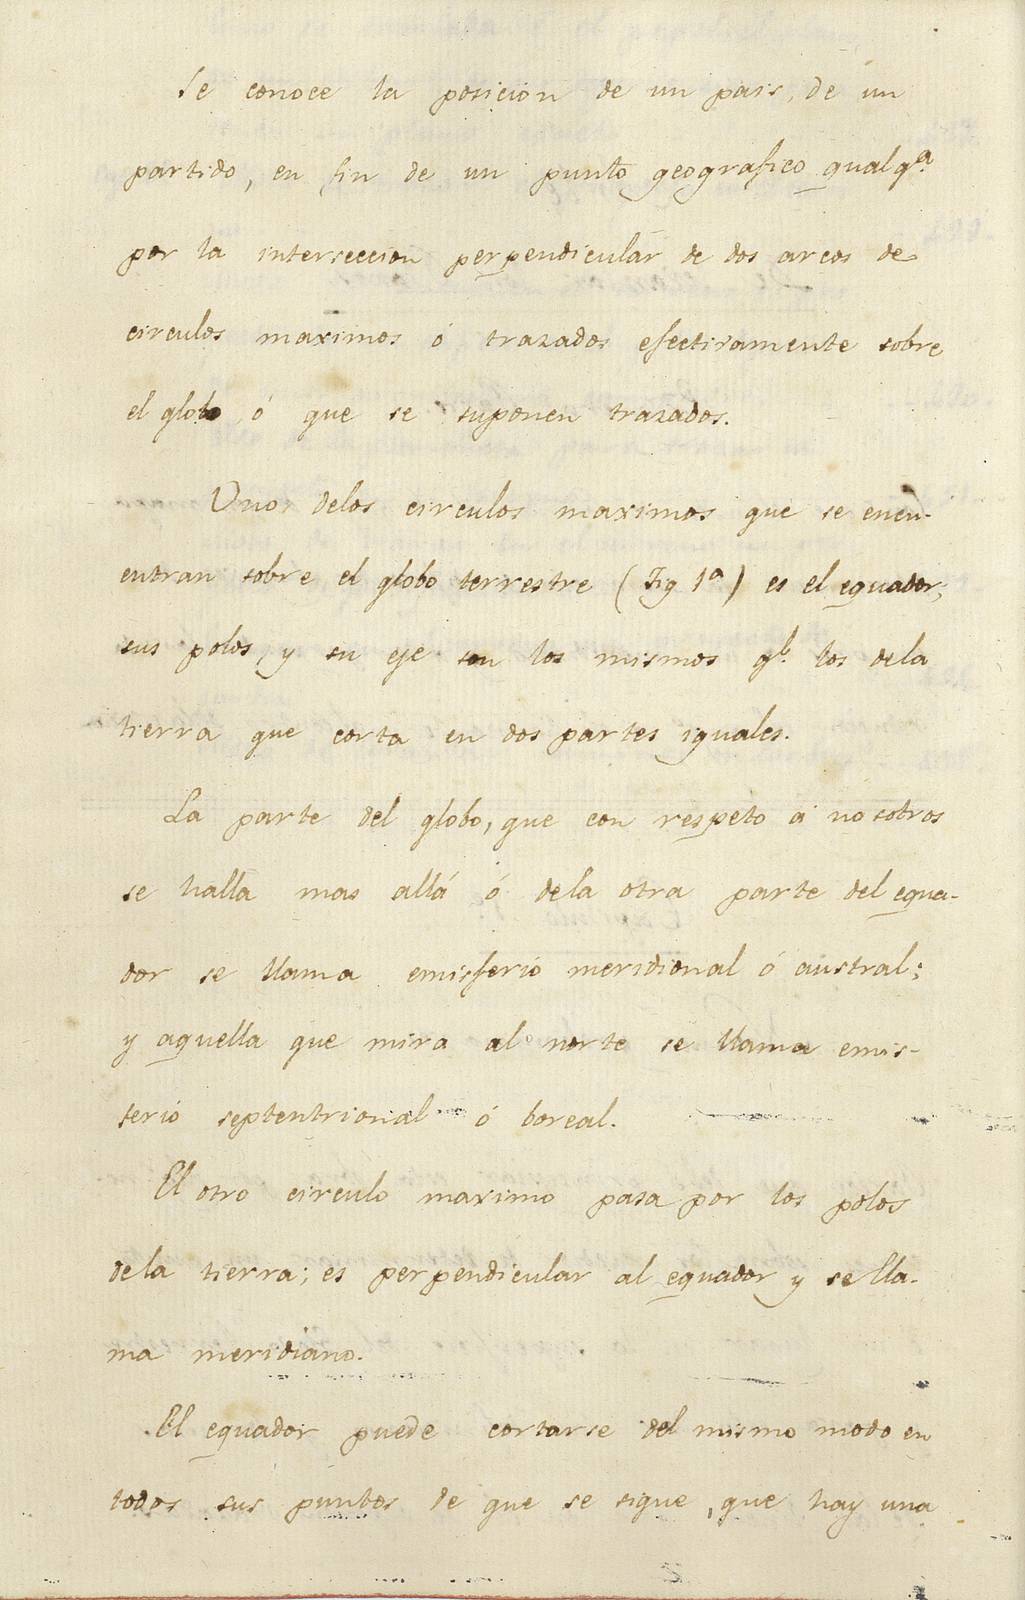 Se conoce la posicion de un pais, de un
partido, en fin de un punto geografico qualqᵃ.
por la interseccion perpendicular de dos arcos de
circulos maximos ó trazados efectivamente sobre
el globo, ó que se suponen trazados.
Uno delos circulos maximos que se encu-
entran sobre el globo terrestre (Fig 1ª) es el equador,
sus polos, y su eje son los mismos qᵉ. los dela
tierra que corta en dos partes iguales.
La parte del globo, que con respeto á nosotros
se halla mas allá ó dela otra parte del equa-
dor se llama emisferio meridional ó austral;
y aquella que mira al norte se llama emis-
ferio septentrional ó boreal.
El otro circulo maximo pasa por los polos
dela tierra; es perpendicular al equador y se lla-
ma meridiano.
El equador puede cortarse del mismo modo en
todos sus puntos de que se sigue, que hay una